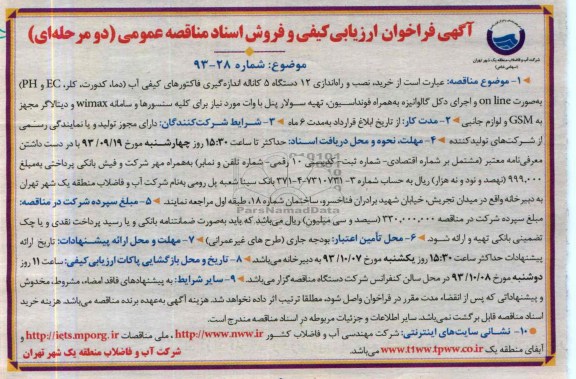 آگهی فراخوان ارزیابی کیفی و فروش اسناد مناقصه عمومی (دو مرحله‌ای)
موضوع: شماره ۲۸-۹۳
شرکت آب و فاضلاب منطقه یک شهر تهران
۱- موضوع مناقصه: عبارت است از خرید، نصب و راه‌اندازی ۱۲ دستگاه ۵ کاناله اندازه‌گیری فاکتورهای کیفی آب (دما، کدورت، کلر، EC و PH)
به‌صورت on line و اجرای دکل گالوانیزه به‌همراه فونداسیون، تهیه سولار پنل با وات مورد نیاز برای کلیه سنسورها و سامانه wimax و دیتالاگر مجهز
به GSM و لوازم جانبی ۲- مدت کار: از تاریخ ابلاغ قرارداد به‌مدت ۶ ماه ۳- شرایط شرکت‌کنندگان: دارای مجوز تولید و یا نمایندگی رسمی
از شرکت‌های تولیدکننده ۴- مهلت، نحوه و محل دریافت اسناد: حداکثر تا ساعت ۱۵:۳۰ روز چهارشنبه مورخ ۹۳/۰۹/۱۹ با در دست داشتن
معرفی‌نامه معتبر (مشتمل بر شماره اقتصادی- شماره ثبت- کدپستی ۱۰ رقمی- شماره تلفن و نمابر) به‌همراه مهر شرکت و فیش بانکی پرداختی به‌مبلغ
۹۹۹.۰۰۰ (نهصد و نود و نه هزار) ریال به حساب شماره ۳-۷۳۱۰۷۳۱-۴-۳۷۱ بانک سینا شعبه پل رومی به‌نام شرکت آب و فاضلاب منطقه یک شهر تهران
به دبیرخانه واقع در میدان تجریش، خیابان شهید برادران فناخسرو، ساختمان شماره ۱۸، طبقه اول مراجعه نمایند. ۵- مبلغ سپرده شرکت در مناقصه:
مبلغ سپرده شرکت در مناقصه ۳۳۰.۰۰۰.۰۰۰ (سیصد و سی میلیون) ریال می‌باشد که باید به‌صورت ضمانتنامه بانکی و یا رسید پرداخت نقدی و یا چک
تضمینی بانکی تهیه و ارائه شود. ۶- محل تأمین اعتبار: بودجه جاری (طرح های غیرعمرانی) ۷- مهلت و محل ارائه پیشنهادات: تاریخ ارائه
پیشنهادات حداکثر ساعت ۱۵:۳۰ روز یکشنبه مورخ ۹۳/۱۰/۰۷ به دبیرخانه می‌باشد. ۸- تاریخ و محل بازگشایی پاکات ارزیابی کیفی: ساعت ۱۱ روز
دوشنبه مورخ ۹۳/۱۰/۰۸ در محل سالن کنفرانس شرکت دستگاه مناقصه‌گزار می‌باشد. ۹- سایر شرایط: به پیشنهادهای فاقد امضاء، مشروط، مخدوش
و پیشنهاداتی که پس از انقضاء مدت مقرر در فراخوان واصل شود، مطلقا ترتیب اثر داده نخواهد شد. هزینه آگهی به‌عهده برنده مناقصه می‌باشد. هزینه خرید
اسناد مناقصه قابل برگشت نمی‌باشد. سایر اطلاعات و جزئیات مربوطه در اسناد مناقصه مندرج است.
۱۰- نشانی سایت‌های اینترنتی: شرکت مهندسی آب و فاضلاب کشور http://www.nww.ir، ملی مناقصات http://iets.mporg.ir و
آبفای منطقه یک www.t1ww.tpww.co.ir می‌باشد.
شرکت آب و فاضلاب منطقه یک شهر تهران